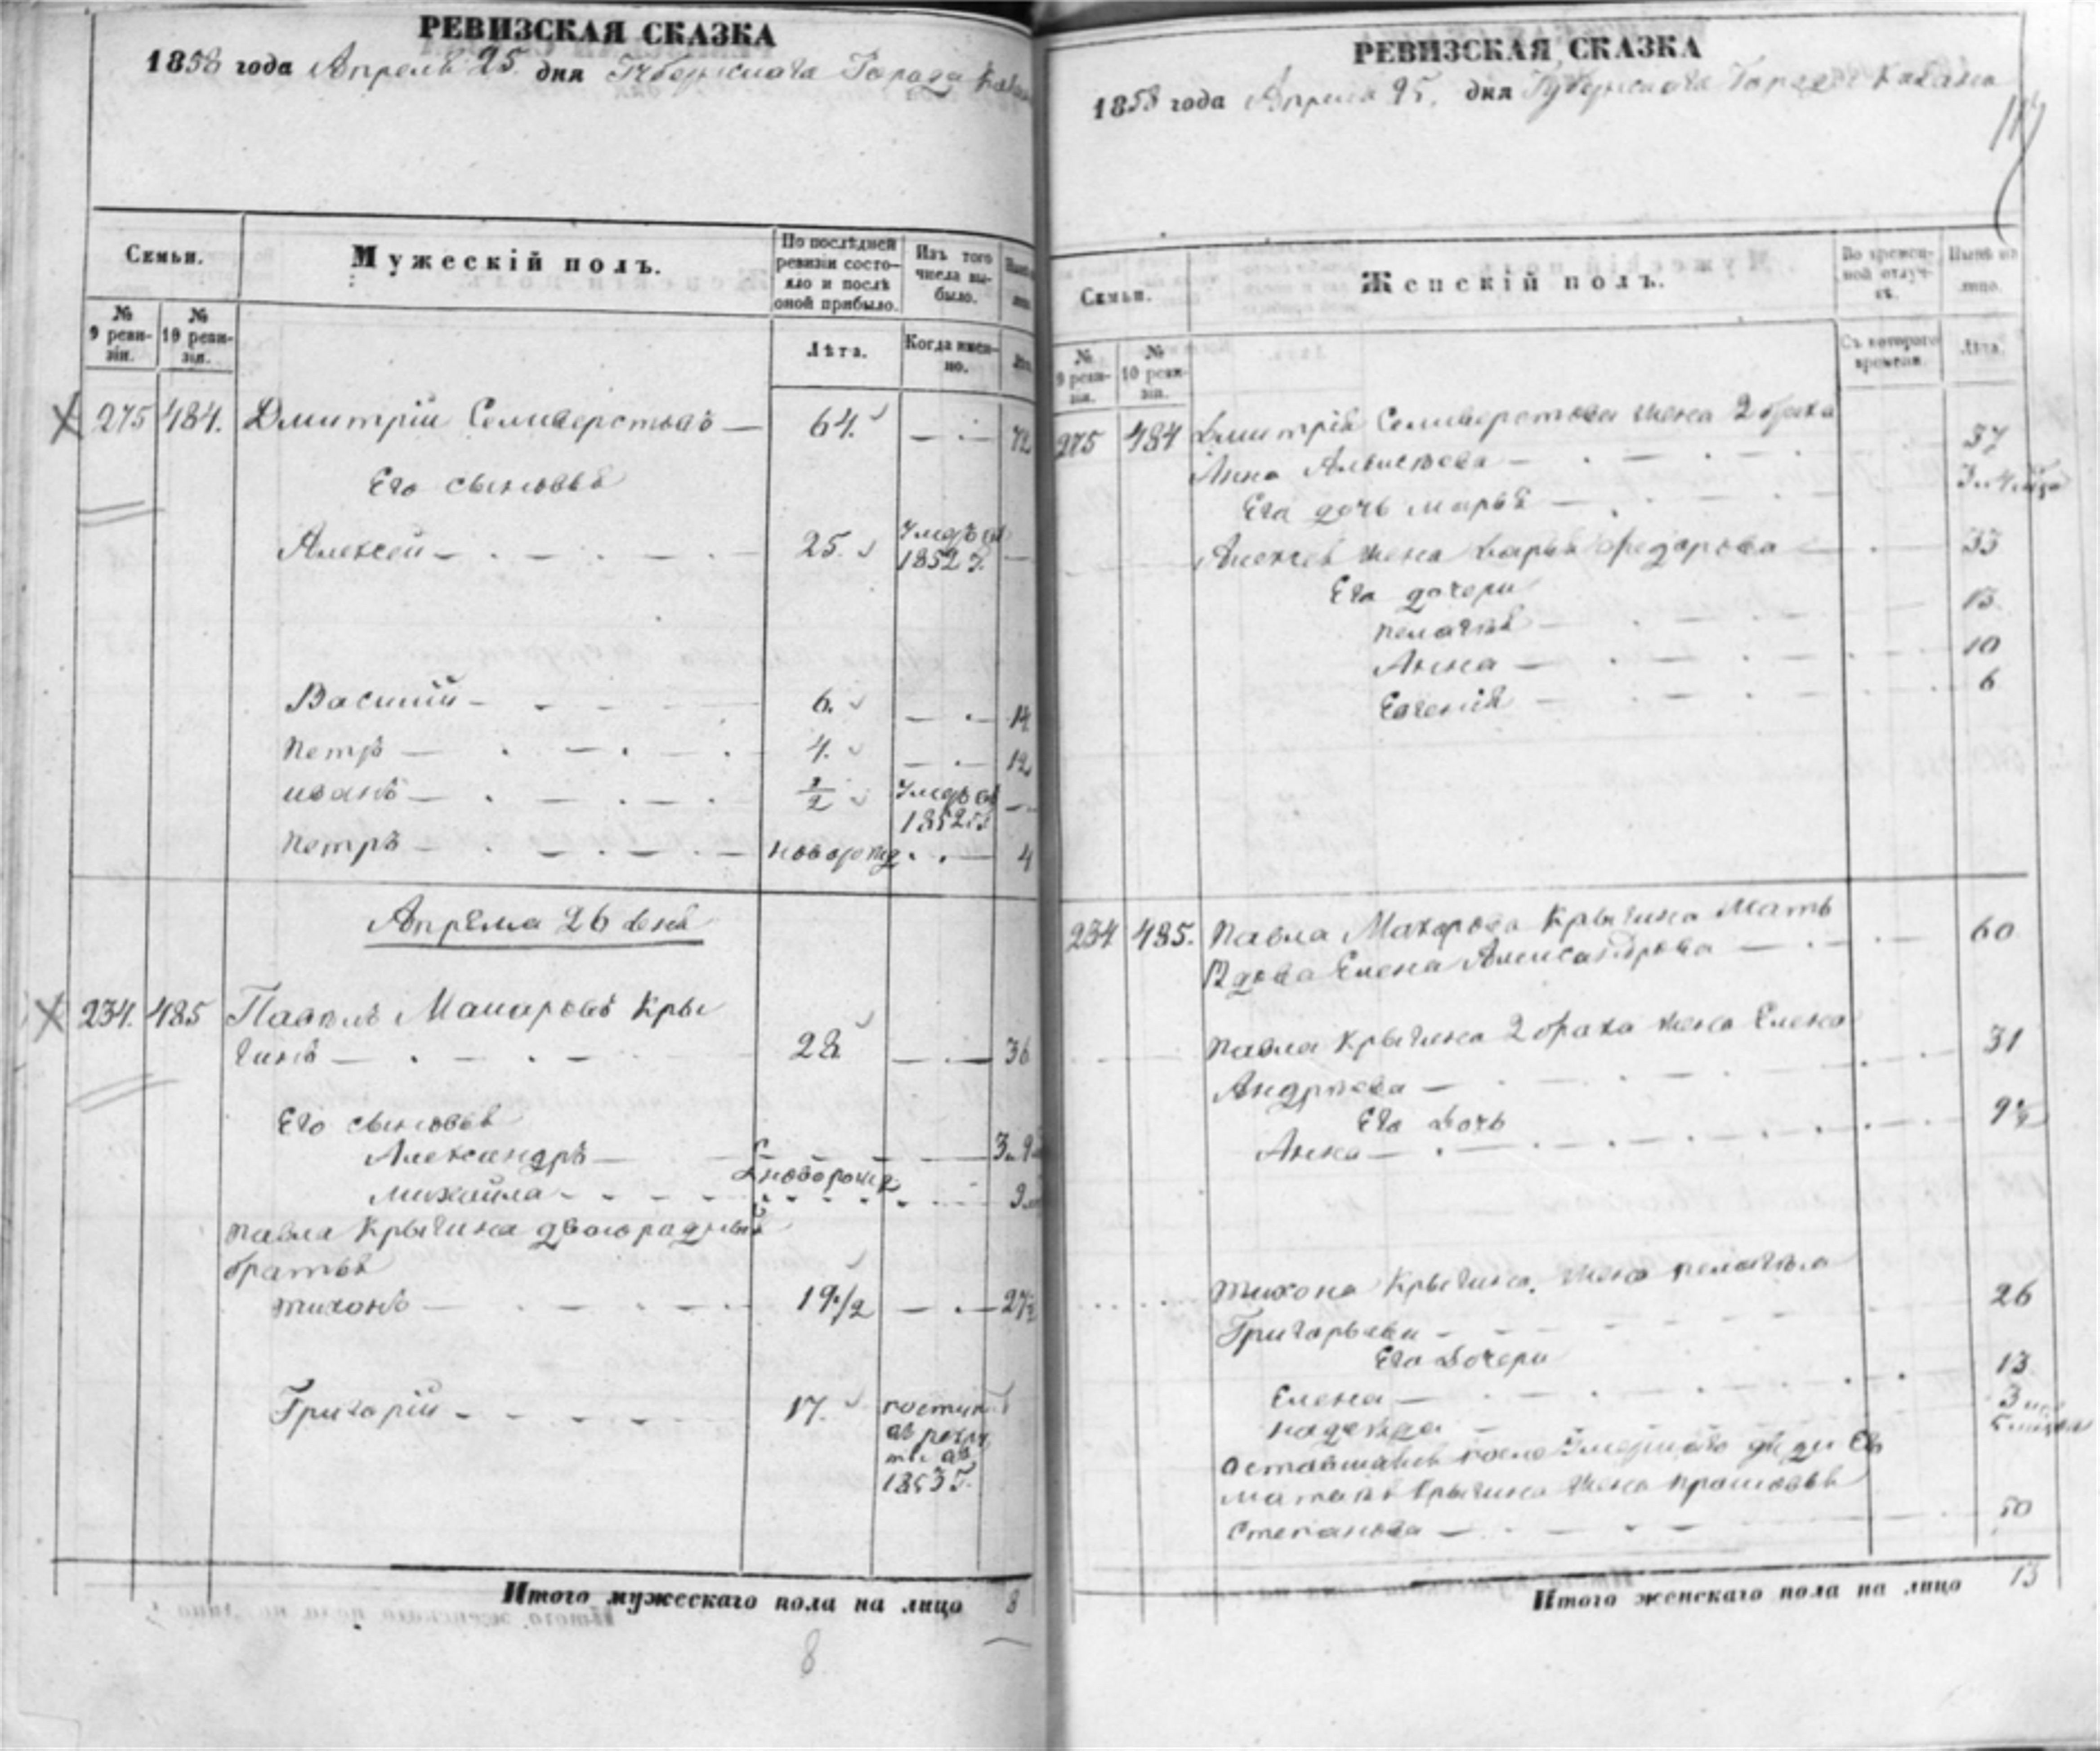 РЕВИЗСКАЯ СКАЗКА
1858 года Апреля 25. дня Губернскаго Города
Семьи.
Мужескій полъ.
По послѣдней ревизіи состояло и послѣ оной прибыло.
Изъ того числа выбыло.
№ 9 ревизіи.
№ 10 ревизіи.
Лѣта.
Когда именно.
275 484. Дмитрій Селиверстовъ — 64. — 72
Его сыновья
Алексей — 25. Умеръ въ 1852 г. —
Василій — 6. — 14
Петръ — 4. — 12
иванъ — 1/2 Умеръ въ 1852 г. —
Петръ — новорожд. — 4
Апреля 26 дня
234. 485 Павелъ Макаровъ Кры
гинъ — 28. — 36
Его сыновья
Александръ — 3 9
новорожд
михайла —
Павла Крыгина двоюрадныи
братья
тихонъ — 19 1/2 — 27 1/2
Григорій — 17. поступ. въ рекру ты въ 1853 г.
Итого мужескаго пола на лицо 8
8
РЕВИЗСКАЯ СКАЗКА
1858 года Апреля 25. дня Губернскаго Города Казани
Семьи.
Женскій полъ.
Во временной отлучкѣ.
Нынѣ на лицо.
№ 9 ревизіи.
№ 10 ревизіи.
Съ котораго времени.
Лѣта.
275 484 Дмитрія Селиверстова жена 2 брака
Анна — 37
Его дочь марья —
Алексея жена Дарья Федорова — 33
Его дочери
пелагея — 13.
Анна — 10
Евгенія — 6
234 485. Павла Макарова Крыгина мать
Вдова Елена Александрова — 60
Павла Крыгина 2 брака жена Елена
Андреева — 31
Его Дочь
Анна — 9 1/2
тихона Крыгина. жена пелагея
Григорьева — 26
Его Дочери
Елена — 13.
надежда —
Оставшаяся после Умершаго дяди
Крыгина жена прасковья
Степанова — 50
Итого женскаго пола на лицо 13